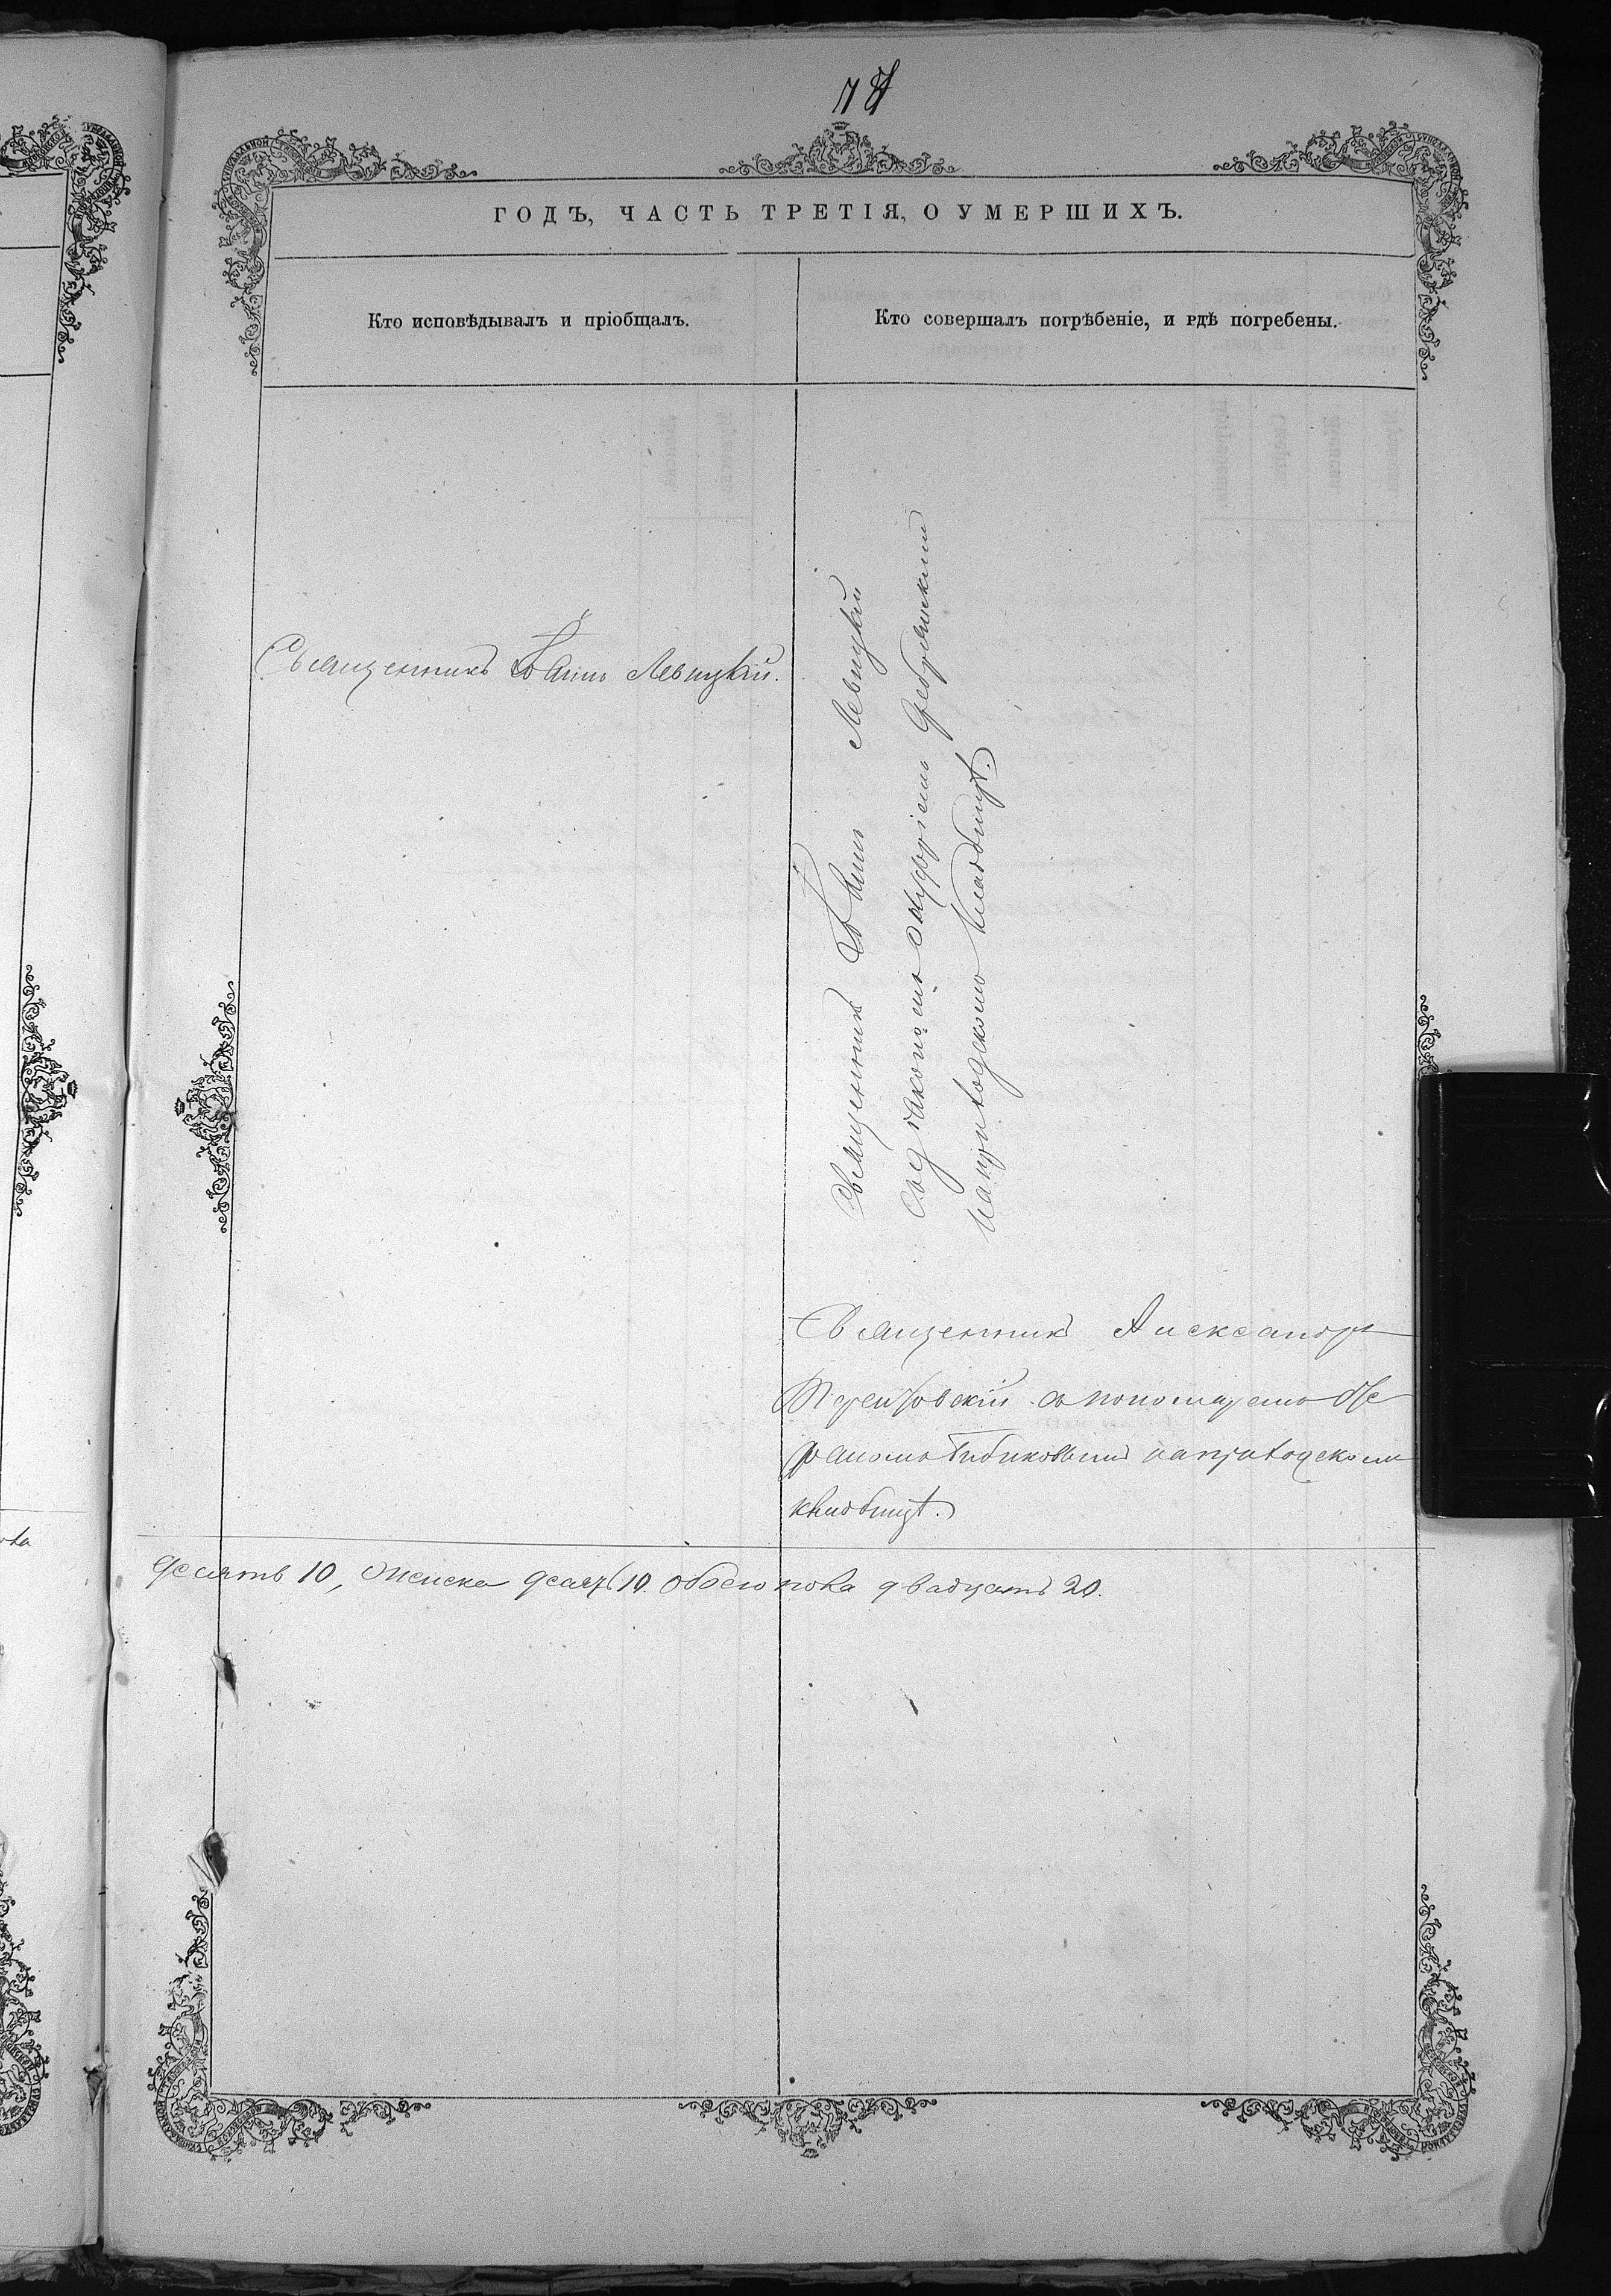 ГОДЪ, ЧАСТЬ ТРЕТІЯ, О УМЕРШИХЪ.
Кто исповѣдывалъ и пріобщалъ.
Кто совершалъ погрѣбеніе, и гдѣ погребены.
Священникъ Іоаннъ Левицкій.
Священникъ Іоаннъ Левицкій
съ діакономъ
на приходскомъ кладбищѣ.
Священникъ Александръ
съ пономаремъ
Бибиковымъ на приходскомъ
кладбищѣ.
десять 10, женска десять 10. обоего пола двадцать 20.